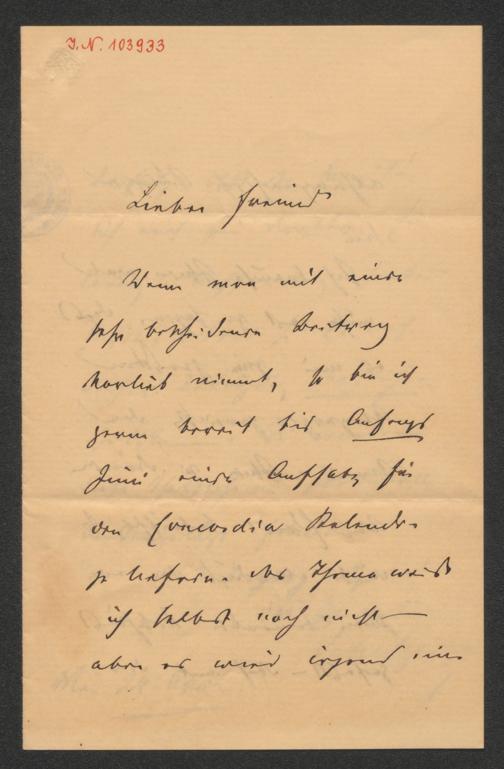 J. N. 103933
Lieber Freund
Wenn man mit einem
sehr bescheidenen Beitrag
vorlieb nimmt, so bin ich
gern bereit bis Anfangs
Juni einen Aufsatz für
den Concordia Kalender
zu liefern. Das Thema weiß
ich selbst noch nicht
aber es wird irgend ein